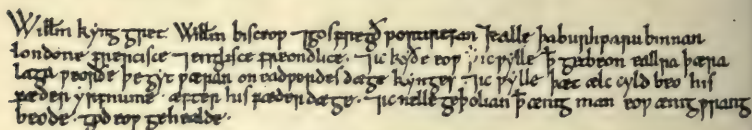 Willm kyng gret Willm bisceop ⁊ gosfregð portirefan ⁊ ealle þa burhƿaru binnan
londone frencisce ⁊ englisce freondlice · ⁊ ic kyðe eoƿ þ ic ƿylle þ get beon eallra þæra
laga ƿeorðe þe gyt ƿæran on eadƿerdes dæge kynges · ⁊ ic ƿylle þæt ælc cyld beo his
fæder yrfnume · æfter his fæder dæge · ⁊ ic nelle geþolian þ ænig man eoƿ ænig ƿrang
beode · god eoƿ gehealde ·